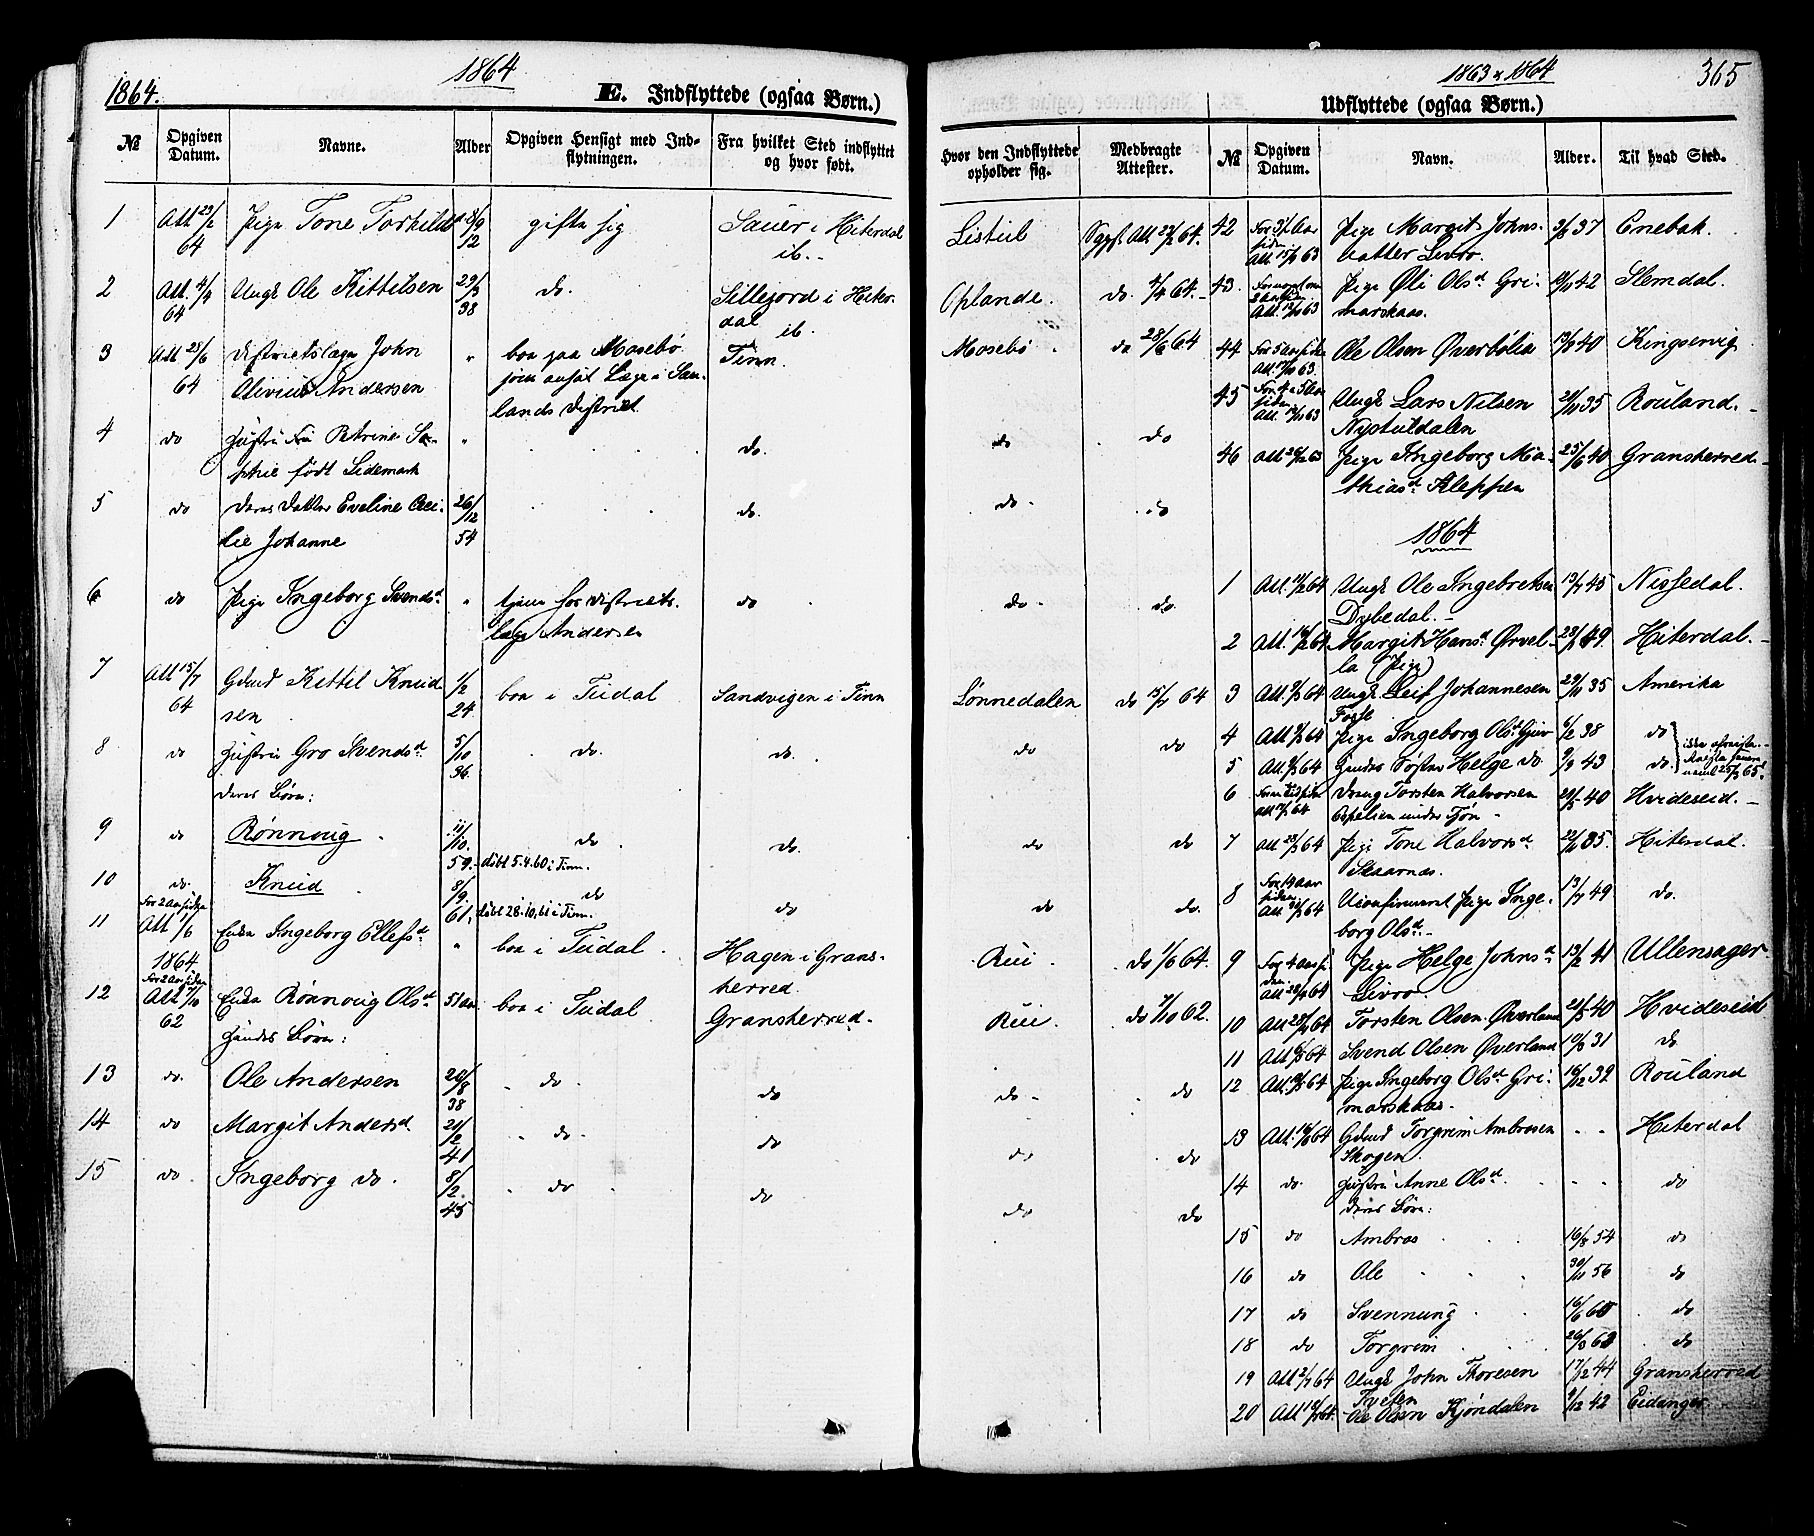 1864.
1864
E. Indflyttede (ogsaa Børn.)
№
Opgiven Datum.
Navne.
Alder
Opgiven Hensigt med Indflytningen.
Fra hvilket Sted indflyttet og hvor født.
Hvor den Indflyttede opholder sig.
Medbragte Attester.
1 Att 23/2 64 Pige Tone Torkilds 8/9 12 gifte sig Sauer i Hiterdal ib. Listul Att 23/2 64.
2 Att. 4/4 64 Ungk Ole Kittilsen 29/3 38 do. Sillejord i Hiterdal ib. Oplande. do. 4/4 64.
3 Att 28/6 64 Districtslæge John Olivius Andersen " boe paa Mosebø som ansat Læge i Sanlands District Tinn. Mosebø do 28/6 64
4 do Hustru Fru Petrine Sophie født Lidemark " do. do do
5 do deres Datter Eveline Cecilie Johanne 26/12 54 do. do. do
6 do Pige Ingeborg Svends d. " tjene hos Districtslæge Andersen do do. do.
7 Att 15/7 64 Gdmd Kittil Knudsen 1/2 24 boe i Tudal Sandvigen i Tinn Lønnedalen do 15/7 64
8 do Hustru Gro Svends d. 5/10 36. do. do. do do
deres Børn:
9 do Rønnoug 11/10. 59. do døbt 5.4.60 i Tinn. do. do do
10 do. Knud 8/9. 61. do døbt 28.10.61 i Tinn. do do do.
11 For 2 aar siden Att 1/6 1864 Enke Ingeborg Ellefs d. " boe i Tudal Hagen i Gransherred. Rui do 1/6 64.
12 For 2 aar siden Att 7/10 62 Enke Rønnoug Ols d 51 aar boe i Tudal Gransherred. Rui. do 7/10 62.
hendes Børn:
13 do. Ole Andersen 20/8 38 do. do do do
14 do Margit Andersd. 21/12 41 do. do do do
15 do Ingeborg do. 8/2. 45 do do do do
1863 & 1864
365
Udflyttede (ogsaa Børn.)
№
Opgiven Datum.
Navn.
Alder.
Til hvad Sted.
42 Att 15/1 63 Pige Margit Johnsdatter Livro. 2/6 37 Enebak.
43. Pige Øli Ols d Grimarskaas. 19/11 42 Slemdal.
44 For 5 aar siden Ole Olsen Øverbølia 13/8 40 Kingservig
45 Ungk Lars Nilsen Nystuldalen 21/11 35 Rouland.
46 Pige Ingeborg Mathias d. Kleppen 25/6 40 Gransherred
1864
1 Ungk Ole Ingebretsen Dybedal. 13/7 45 Nissedal.
2 Margit Hans d. Ørvella (Pige) 23/ 49. Hiterdal.
3 Ungk Leif Johannesen Fosse 29/11 35 Amerika
4 Pige Ingeborg Ols d Gjuv 6/2 38 do
5 hendes Søster Helge do 9/9 43 do.
6 Dreng Torsten Halvorsen under 40 Hvideseid.
7 Pige Tone Halvors d Skaarnæs. 35. Hiterdal.
8 For 14 aar siden Uconfirmeret Pige Ingeborg Ols d. 13/7 49 do.
9 For 4 aar siden Pige Helge Johns d. Livro. 13/2 41 Ullensager
10 Torsten Olsen Øverland 40 Hvideseid
11 Svend Olsen Øverland 31 do
12 Pige Ingeborg Ols d Grimarskaas. 16/12 39 Rouland
13 Gdmd Torgrim Ambrosen Skogen. Hiterdal
14 do. Hustru Anne Ols d. do
deres Børn:
15 do Ambros 16/8 54 do
16 do Ole 30/11 56 do
17 do Svennung 16/6 60 do
18 do Torgrim 62 do
19 Att 2/7 64 Ungk John Thoresen Tveten 17/12 44 Gransherred
20 Ole Olsen Kjøndalen 9/12 42 Eidanger